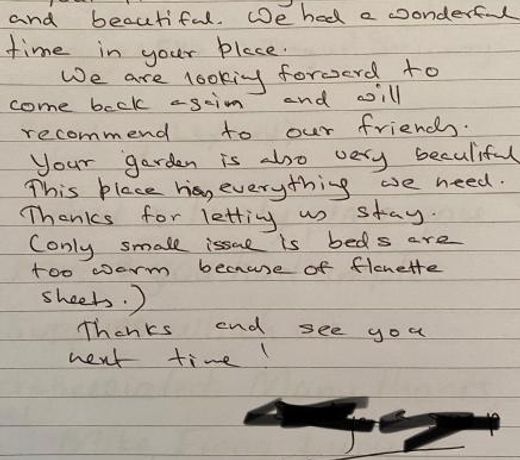 and beautiful. We had a wonderful
time in your place.
We are looking forward to
come back again and will
recommend to our friends.
Your garden is also very beautiful
This place has everything we need.
Thanks for letting us stay.
(only small issue is beds are
too warm because of flanette
sheets.)
Thanks and see you
next time!